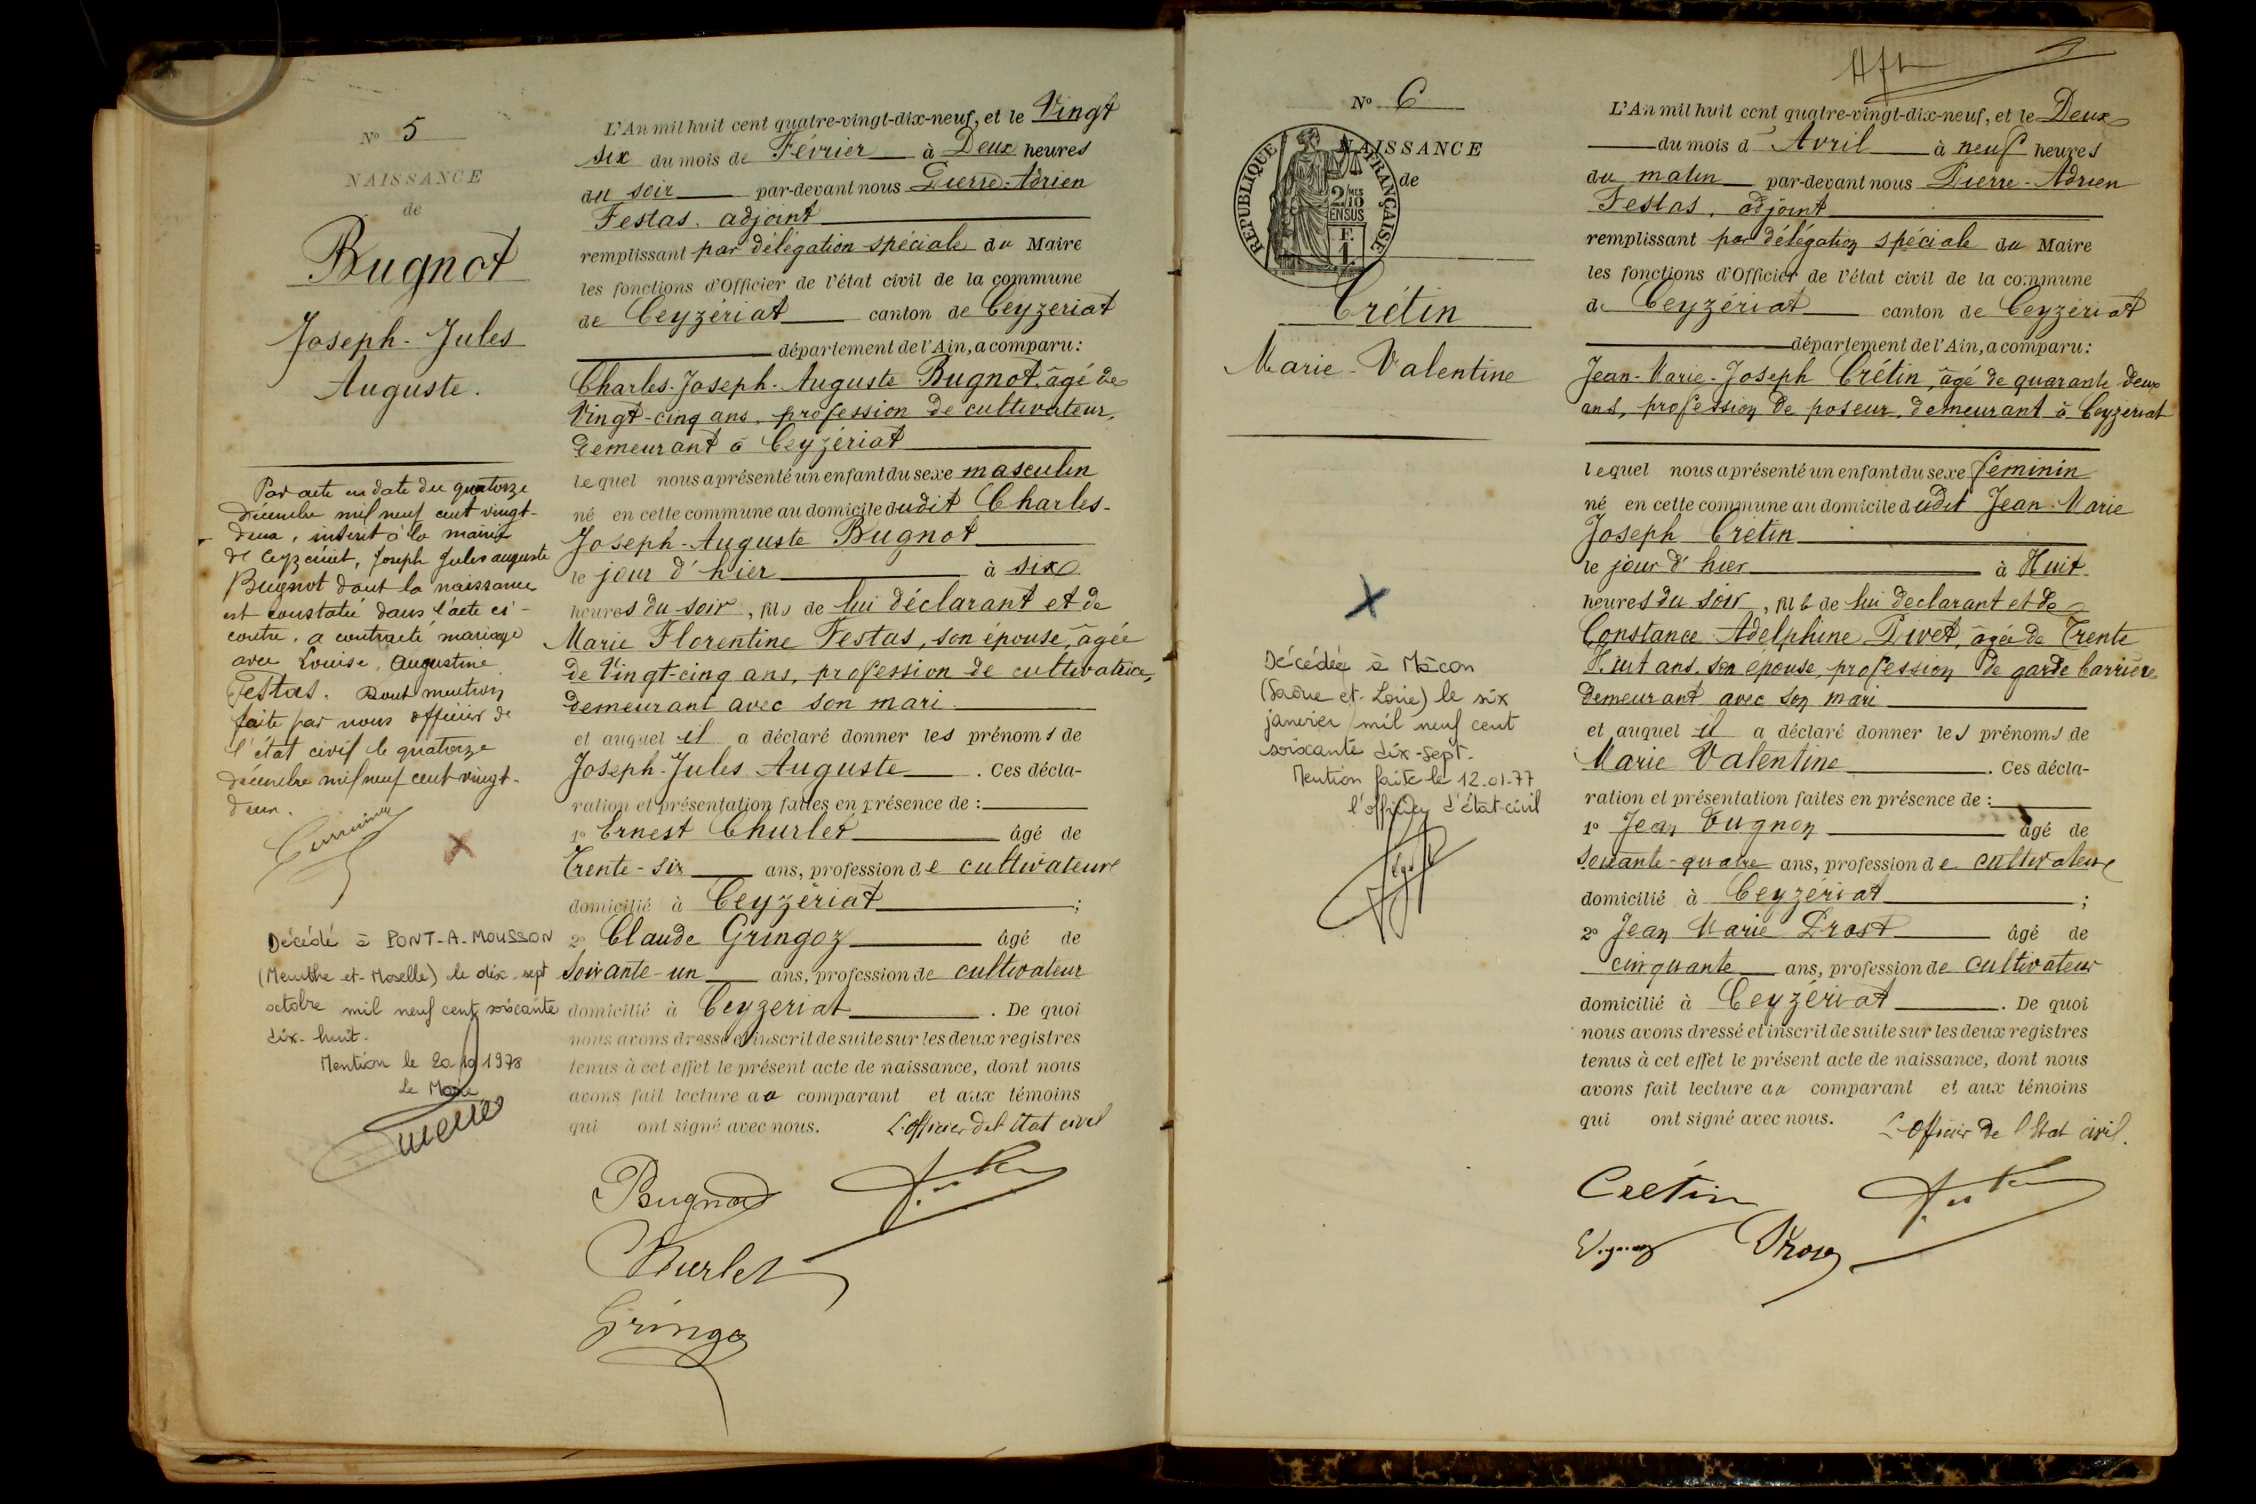 N° 5
NAISSANCE
de
Bugnot
Joseph-Jules
Auguste.
Par acte en date du quatorze
décembre mil neuf cent vingt-
deux, inscrit à la mairie
de Ceyzériat, Joseph Jules auguste
Bugnot dont la naissance
est constatée dans l'acte ci-
contre, a contracté mariage
avec Louise, Augustine
Festas. Dont mention
faite par nous officier de
l'état civil le quatorze
décembre mil neuf cent vingt-
deux.
Décédé à PONT-A-MOUSSON
(Meurthe-et-Moselle) le dix-sept
octobre mil neuf cent soixante
dix-huit.
Mention le 20 10 1978
Le Maire
L'An mil huit cent quatre-vingt-dix-neuf, et le Vingt
six du mois de Février à Deux heures
du soir par-devant nous Pierre-Adrien
Festas, adjoint
remplissant par délégation spéciale du Maire
les fonctions d'Officier de l'état civil de la commune
de Ceyzériat canton de Ceyzeriat
département de l'Ain, a comparu:
Charles-Joseph-Auguste Bugnot, âgé de
Vingt-cinq ans, profession de cultivateur,
demeurant à Ceyzériat
lequel nous a présenté un enfant du sexe masculin
né en cette commune au domicile dudit Charles-
Joseph-Auguste Bugnot
le jour d'hier à six
heures du soir, fils de lui déclarant et de
Marie Florentine Festas, son épouse, âgée
de Vingt-cinq ans, profession de cultivatrice,
demeurant avec son mari
et auquel il a déclaré donner les prénoms de
Joseph-Jules Auguste. Ces décla-
ration et présentation faites en présence de :
1° Ernest Churlet âgé de
Trente-six ans, profession de cultivateur
domicilié à Ceyzériat ;
2° Claude Gringoz âgé de
Soixante-un ans, profession de cultivateur
domicilié à Ceyzeriat. De quoi
nous avons dressé et inscrit de suite sur les deux registres
tenus à cet effet le présent acte de naissance, dont nous
avons fait lecture au comparant et aux témoins
qui ont signé avec nous. L'officier de l'Etat civil
Bugnot
Churlet
Gringoz
N° 6
NAISSANCE
de
RÉPUBLIQUE FRANÇAISE
2 MES
10
EN SUS
Crétin
Marie-Valentine
Décédée à Mâcon
(Saône et-Loire) le six
janvier mil neuf cent
soixante dix-sept.
Mention faite le 12.01.77
l'officier d'état-civil
L'An mil huit cent quatre-vingt-dix-neuf, et le Deux
du mois d'Avril à neuf heures
du matin par-devant nous Pierre-Adrien
Festas, adjoint
remplissant par délégation spéciale du Maire
les fonctions d'Officier de l'état civil de la commune
de Ceyzériat canton de Ceyzériat
département de l'Ain, a comparu:
Jean-Marie-Joseph Crétin, âgé de quarante deux
ans, profession de poseur, demeurant à Ceyzériat
lequel nous a présenté un enfant du sexe féminin
né en cette commune au domicile dudit Jean-Marie
Joseph Crétin
le jour d'hier à Huit
heures du soir, fille de lui déclarant et de
Constance Adelphine Pivet, âgée de Trente
Huit ans, son épouse, profession de garde barrière
demeurant avec son mari
et auquel il a déclaré donner les prénoms de
Marie Valentine. Ces décla-
ration et présentation faites en présence de :
1° Jean Vugnon âgé de
Soixante-quatre ans, profession de cultivateur
domicilié à Ceyzériat ;
2° Jean Marie Drost âgé de
cinquante ans, profession de cultivateur
domicilié à Ceyzériat. De quoi
nous avons dressé et inscrit de suite sur les deux registres
tenus à cet effet le présent acte de naissance, dont nous
avons fait lecture au comparant et aux témoins
qui ont signé avec nous. L'officier de l'Etat civil.
Crétin